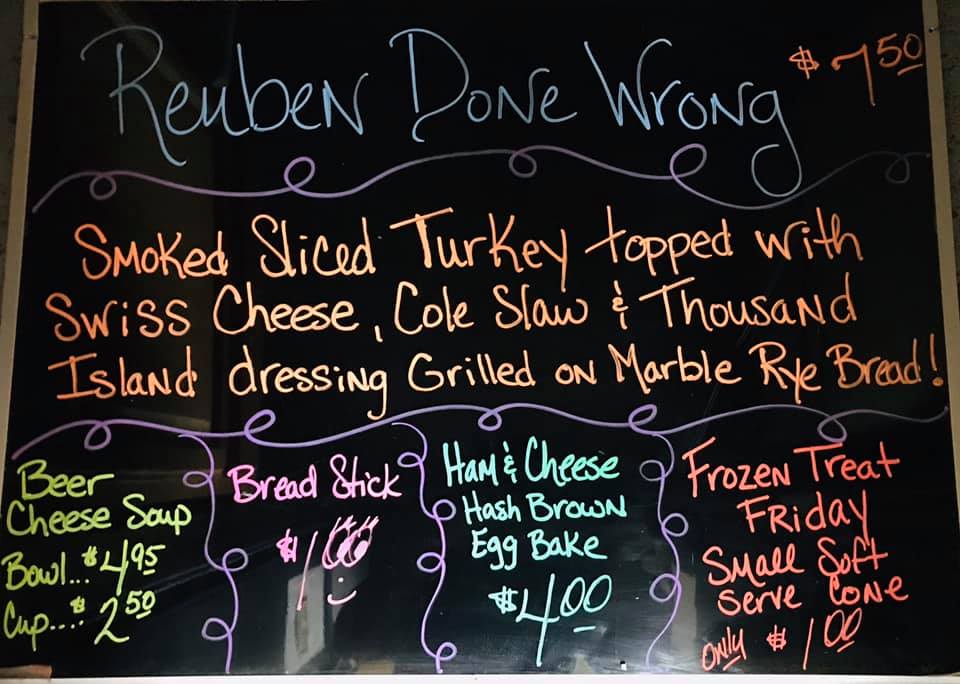 Reuben Done Wrong $7.50
Smoked Sliced Turkey topped with
Swiss Cheese, Cole Slaw & Thousand
Island dressing Grilled on Marble Rye Bread!
Beer
Cheese Soup
Bowl...$4.95
Cup....$2.50
Bread Stick
$1.00
Ham & Cheese
Hash Brown
Egg Bake
$4.00
Frozen Treat
Friday
Small Soft
Serve Cone
only $1.00